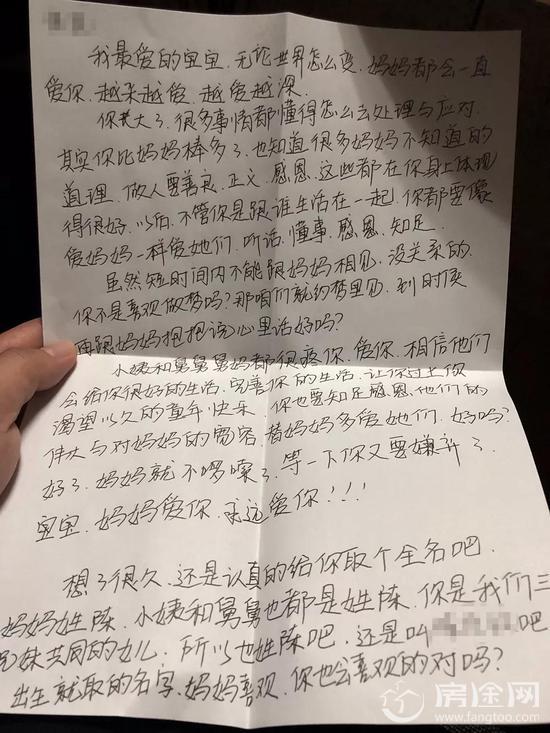 我最爱的宝宝、无论世界怎么变、妈妈都会一直
爱你、越来越爱、越爱越深、
你长大了、很多事情都懂得怎么去处理与应对、
其实你比妈妈棒多了、也知道很多妈妈不知道的
道理、做人要善良、正义、感恩、这些都在你身上体现
得很好、以后、不管你是跟谁生活在一起、你都要像
爱妈妈一样爱她们、听话、懂事、感恩、知足、
虽然短时间内不能跟妈妈相见、没关系的、
你不是喜欢做梦吗?那咱们就约梦里见、到时侯
再跟妈妈抱抱说心里话好吗?
小姨和舅舅舅妈都很疼你、爱你、相信他们
会给你很好的生活、完善你的生活、让你过上你
渴望以久的童年快乐、你也要知足感恩、他们的
伟大与对妈妈的宽容、替妈妈多爱她们、好吗?
好了、妈妈就不啰嗦了、等一下你又要嫌弃了、
宝宝、妈妈爱你、永远爱你!!!
想了很久、还是认真的给你取个全名吧、
妈妈姓陈、小姨和舅舅也都是姓陈、你是我们三
兄妹共同的女儿、所以也姓陈吧、还是叫 吧
出生就取的名字、妈妈喜欢、你也会喜欢的对吗?
房途网
www.fangtoo.com